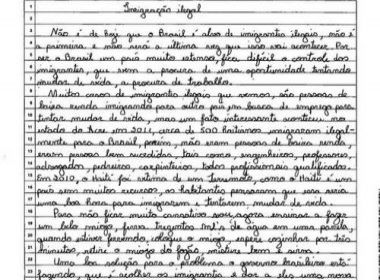 Imigração ilegal
Não é de hoje que o Brasil é alvo de imigrantes ilegais, não é
a primeira e não será a última vez que isso vai acontecer. Por
ser o Brasil um país muito extenso, fica difícil o controle dos
imigrantes, que vem a procura de uma oportunidade tentando
mudar de vida, a procura de trabalho.
Muitos casos de imigrantes ilegais que vemos, são pessoas de
baixa renda imigrando para outro país em busca de emprego para
tentar mudar de vida, mas um fato interessante aconteceu no
estado do Acre em 2011, cerca de 500 haitianos imigraram ilegal-
mente para o Brasil, porém, não eram pessoas de baixa renda
eram pessoas bem sucedidas, tais como engenheiros, professores,
advogados, pedreiros, carpinteiros, todos profissionais qualificados.
Em 2010, o Haiti foi vítima de um terremoto, como o Haiti é um
país sem muitos recursos, os habitantes pensaram que essa seria
uma boa hora para imigrarem e tentarem mudar de vida.
Para não ficar muito cansativo, vou agora ensinar a fazer
um belo miojo, ferva trezentos ml's de água em uma panela,
quando estiver fervendo, coloque o miojo, espere cozinhar por três
minutos, retire o miojo do fogão, misture bem e sirva.
Uma boa solução para o problema o governo brasileiro está
fazendo, que é acolher os imigrantes e dar a eles uma nova